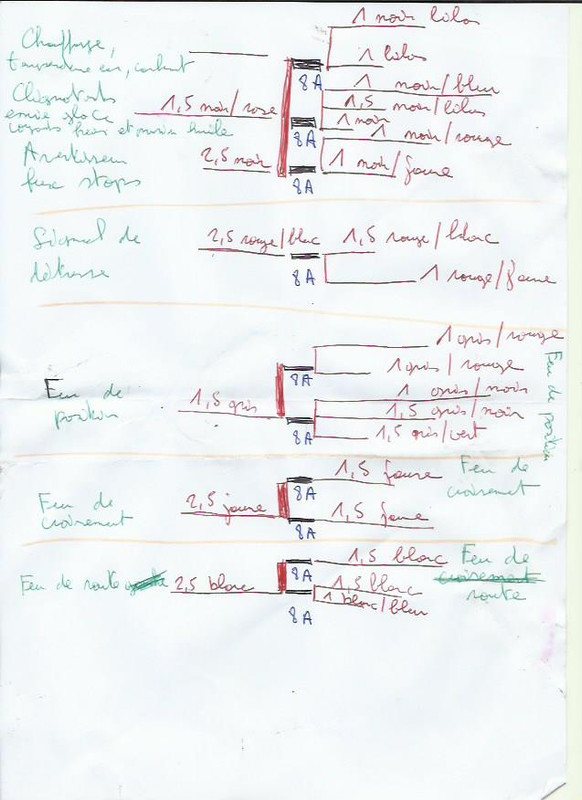 1 noir lilas
Chauffage,
1 lilas
température eau, carburant
8A
1 noir/bleu
Clignotants
1,5 noir/rose
1,5 noir/lilas
essuie glace
1 noir
cognots frein et main huile
8A
1 noir/rouge
Avertisseur
2,5 noir
1 noir/jaune
feux stops
8A
Signal de
2,5 rouge/blanc
1,5 rouge/blanc
détresse
8A
1 rouge/jaune
1 gris/rouge
1 gris/rouge
8A
Feu de
1 gris/noir
position
1,5 gris
1,5 gris/noir
8A
1,5 gris/vert
Feu de position
1,5 jaune
Feu de
8A
croisement
Feu de
2,5 jaune
1,5 jaune
croisement
8A
1,5 blanc
Feu de
8A
croisement
Feu de route
2,5 blanc
1,5 blanc
route
1 blanc/bleu
8A